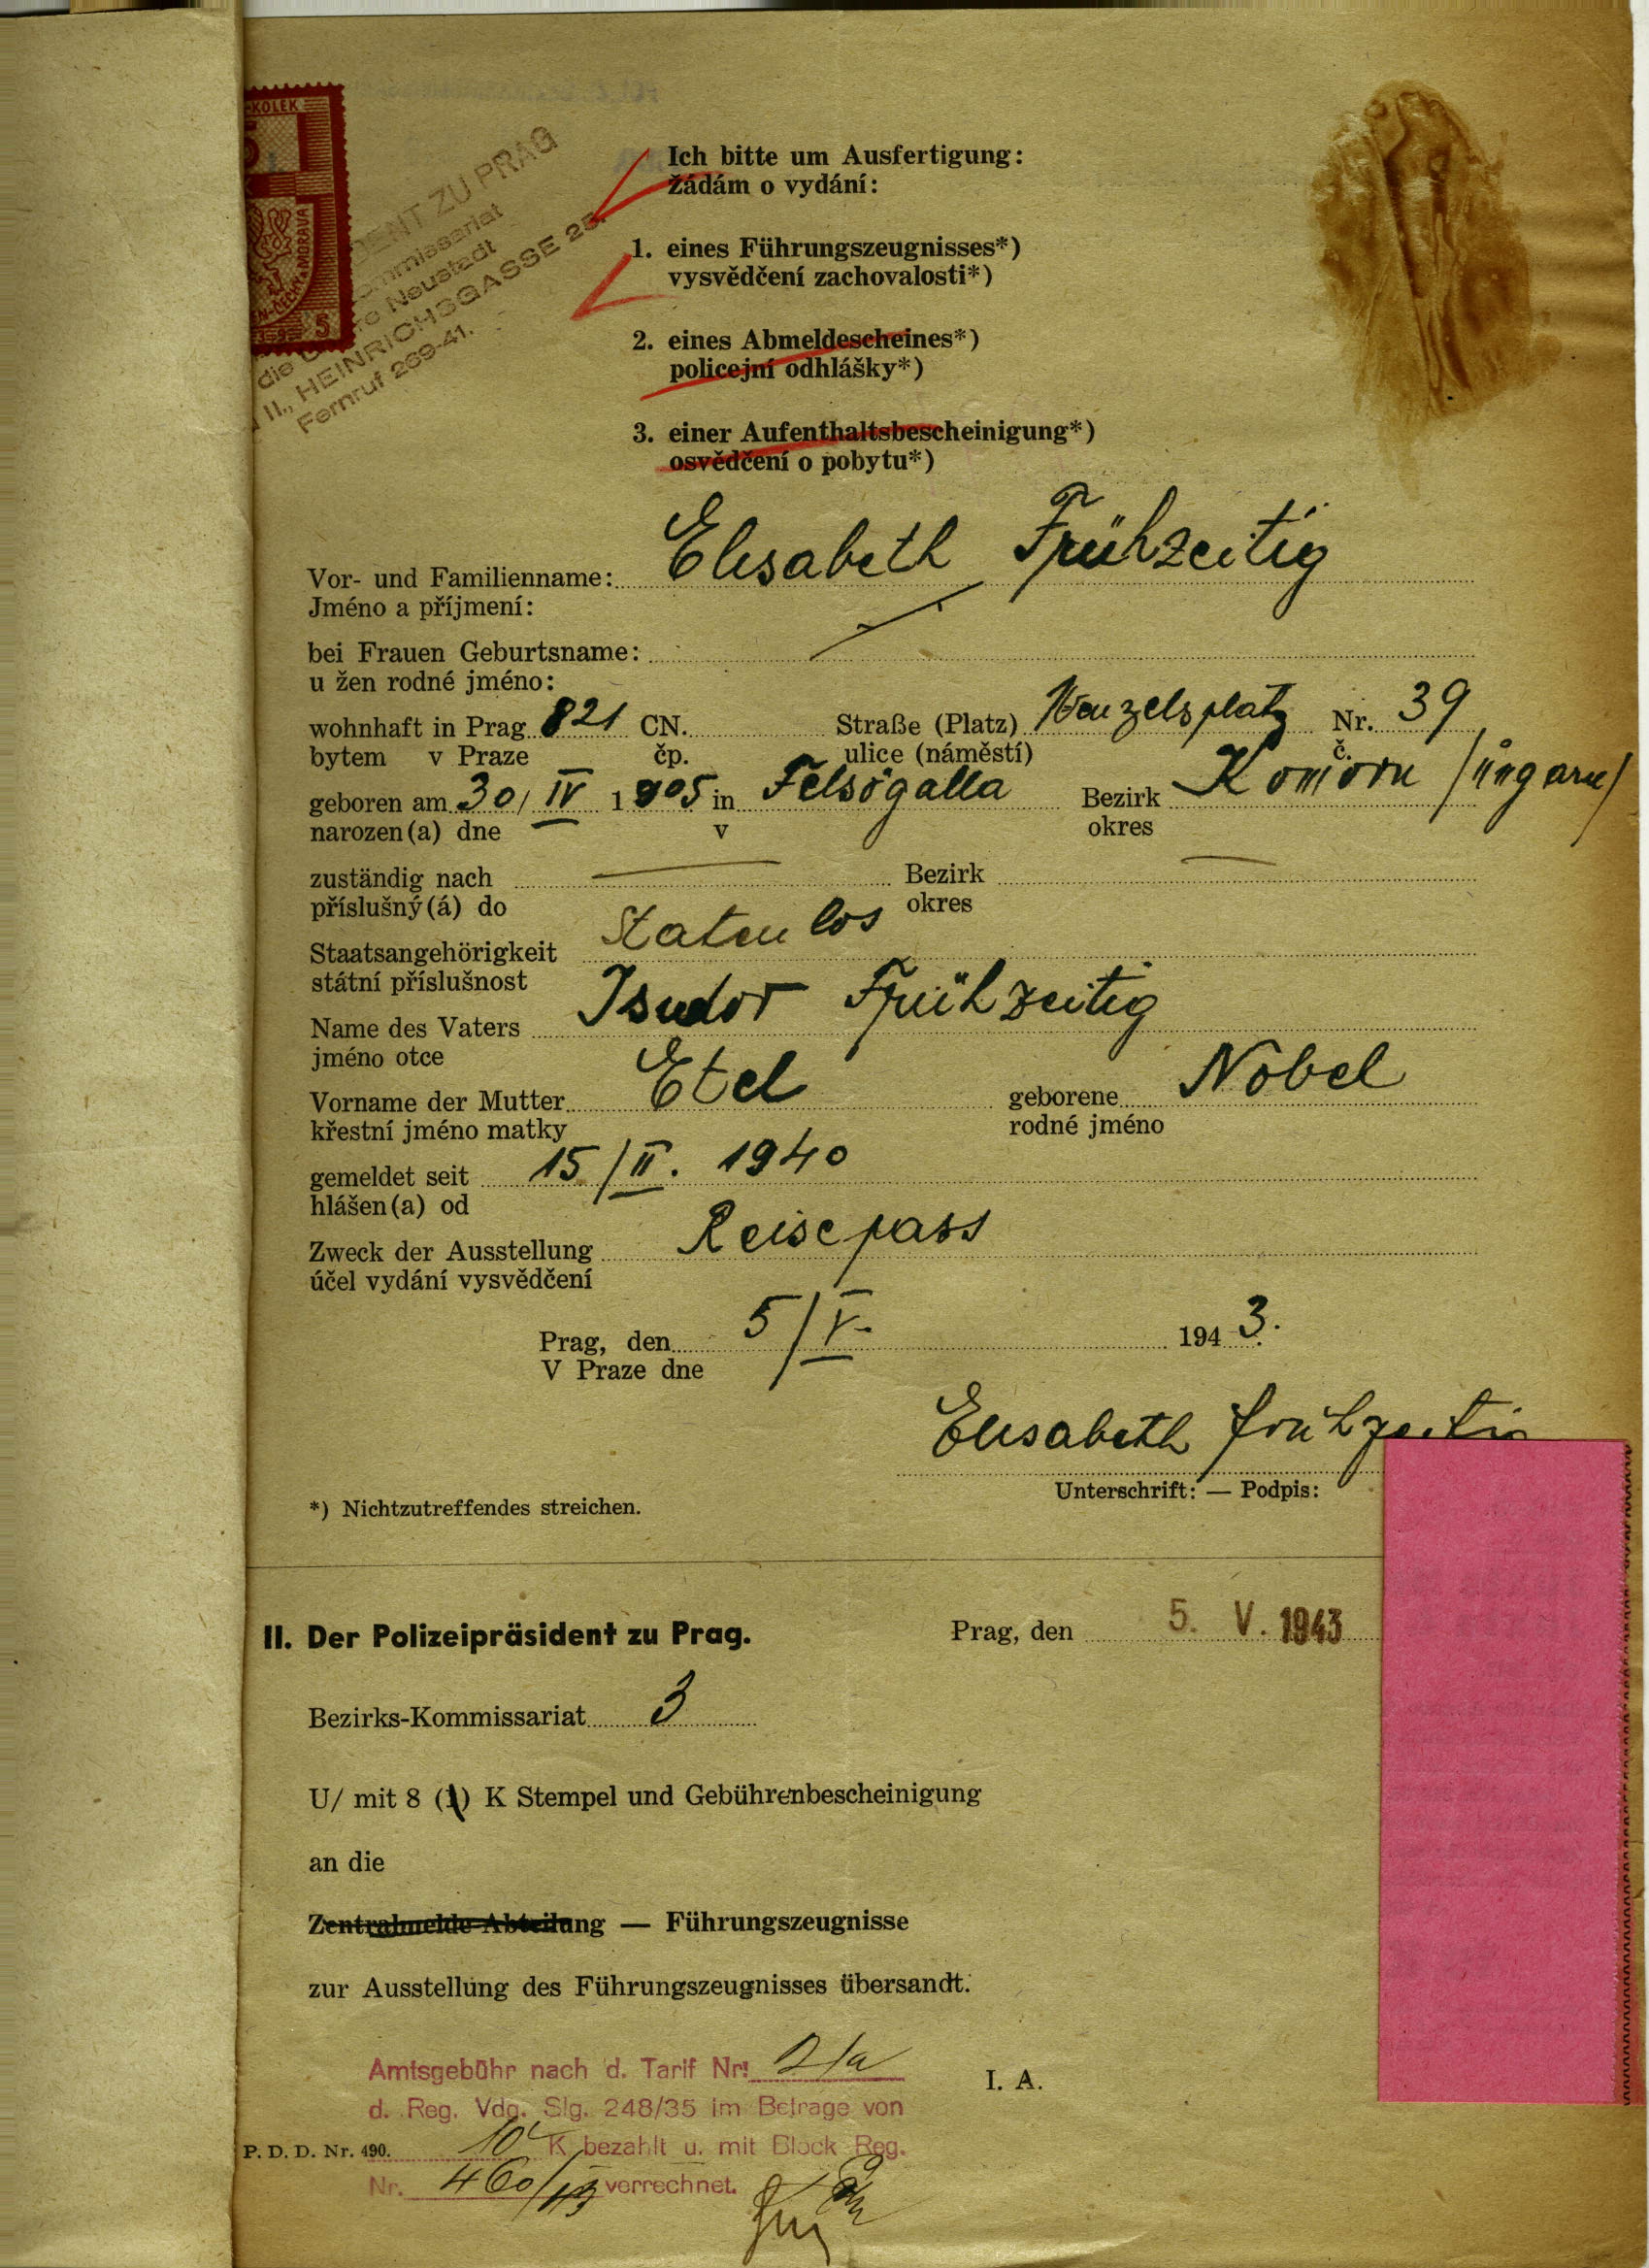 KOLEK
5
ČECHY A MORAVA
5
DENT ZU PRAG
ommissariat
Neustadt
II., HEINRICHSGASSE 25.
Fernruf 269-41.
Ich bitte um Ausfertigung:
Žádám o vydání:
1. eines Führungszeugnisses*)
vysvědčení zachovalosti*)
2. eines Abmeldescheines*)
policejní odhlášky*)
3. einer Aufenthaltsbescheinigung*)
osvědčení o pobytu*)
Vor- und Familienname: Elisabeth Frühzeitig
Jméno a příjmení:
bei Frauen Geburtsname:
u žen rodné jméno:
wohnhaft in Prag 821 CN. Straße (Platz) Wenzelsplatz Nr. 39
bytem v Praze čp. ulice (náměstí) č.
geboren am 30/IV 1905 in Felsögalla Bezirk Komorn /Ungarn/
narozen(a) dne v okres
zuständig nach — Bezirk —
příslušný(á) do okres
Staatsangehörigkeit Statenlos
státní příslušnost
Name des Vaters Isudor Frühzeitig
jméno otce
Vorname der Mutter Etel geborene Nobel
křestní jméno matky rodné jméno
gemeldet seit 15/II. 1940
hlášen(a) od
Zweck der Ausstellung Reisepass
účel vydání vysvědčení
Prag, den 5/V. 1943.
V Praze dne
Elisabeth Frühzeitig
Unterschrift: — Podpis:
*) Nichtzutreffendes streichen.
II. Der Polizeipräsident zu Prag. Prag, den 5. V. 1943
Bezirks-Kommissariat 3
U/ mit 8 (1) K Stempel und Gebührenbescheinigung
an die
Zentralmelde-Abteilung — Führungszeugnisse
zur Ausstellung des Führungszeugnisses übersandt.
Amtsgebühr nach d. Tarif Nr. 2/a
I. A.
d. Reg. Vdg. Slg. 248/35 im Betrage von
P. D. D. Nr. 490. 10 K bezahlt u. mit Block Reg.
Nr. 460/43 verrechnet.